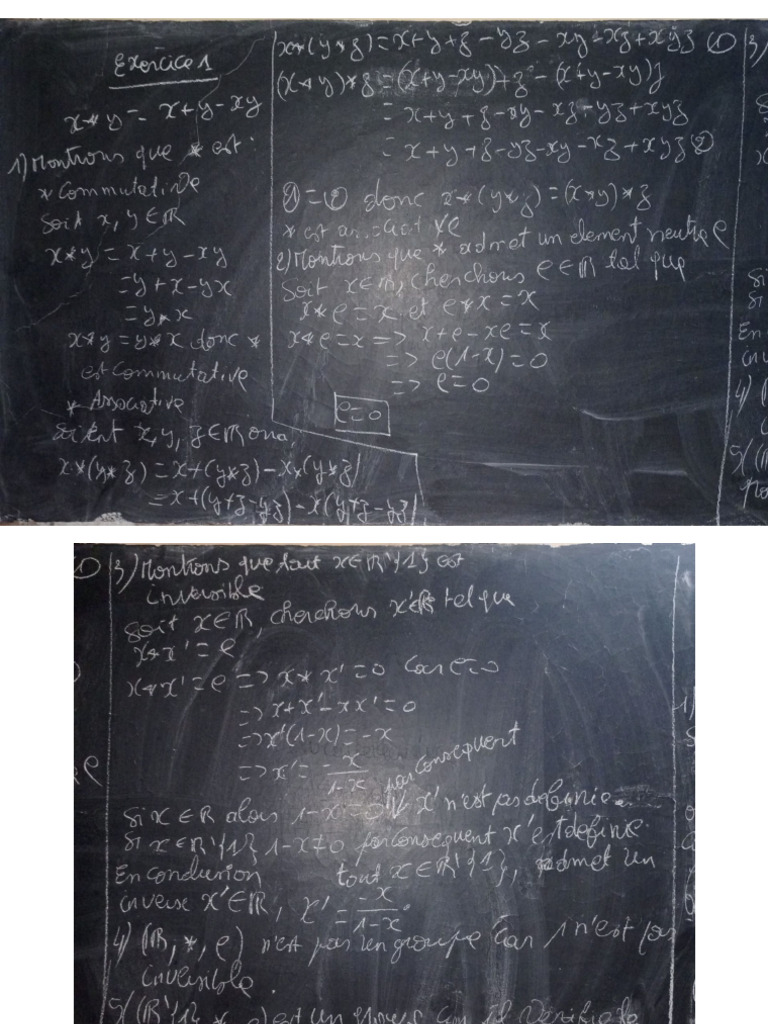 Exercice 1
x*y = x+y-xy
1) Montrons que * est :
* Commutative
Soit x, y ∈ ℝ
x*y = x+y-xy
= y+x-yx
= y*x
x*y = y*x donc *
est Commutative
* Associative
Soient x, y, z ∈ ℝ on a
x*(y*z) = x+(y*z)-x×(y*z)
= x+(y+z-yz)-x(y+z-yz)
x*(y*z) = x+y+z-yz-xy-xz+xyz ①
(x*y)*z = (x+y-xy)+z-(x+y-xy)z
= x+y+z-xy-xz-yz+xyz
= x+y+z-yz-xy-xz+xyz ②
① = ② donc x*(y*z) = (x*y)*z
* est associative
2) Montrons que * admet un element neutre e
Soit x∈ℝ, cherchons e∈ℝ tel que
x*e = x et e*x = x
x*e = x => x+e-xe = x
=> e(1-x) = 0
=> e = 0
e = 0
3) Montrons que tout x∈ℝ\{1} est
inversible
Soit x∈ℝ, cherchons x'∈ℝ tel que
x*x' = e
x*x' = e => x*x' = 0 Car e = 0
=> x+x'-xx' = 0
=> x'(1-x) = -x
=> x' = -x/1-x par consequent
Si x∈ℝ alors 1-x = 0 x' n'est pas definie.
Si x∈ℝ\{1} 1-x≠0 par consequent x' est definie.
En conclusion tout x∈ℝ\{1}, admet un
inverse x'∈ℝ, x' = -x/1-x.
4) (ℝ, *, e) n'est pas un groupe Car 1 n'est pas
inversible.
5) (ℝ\{1}, *, e) est un car il verifie le